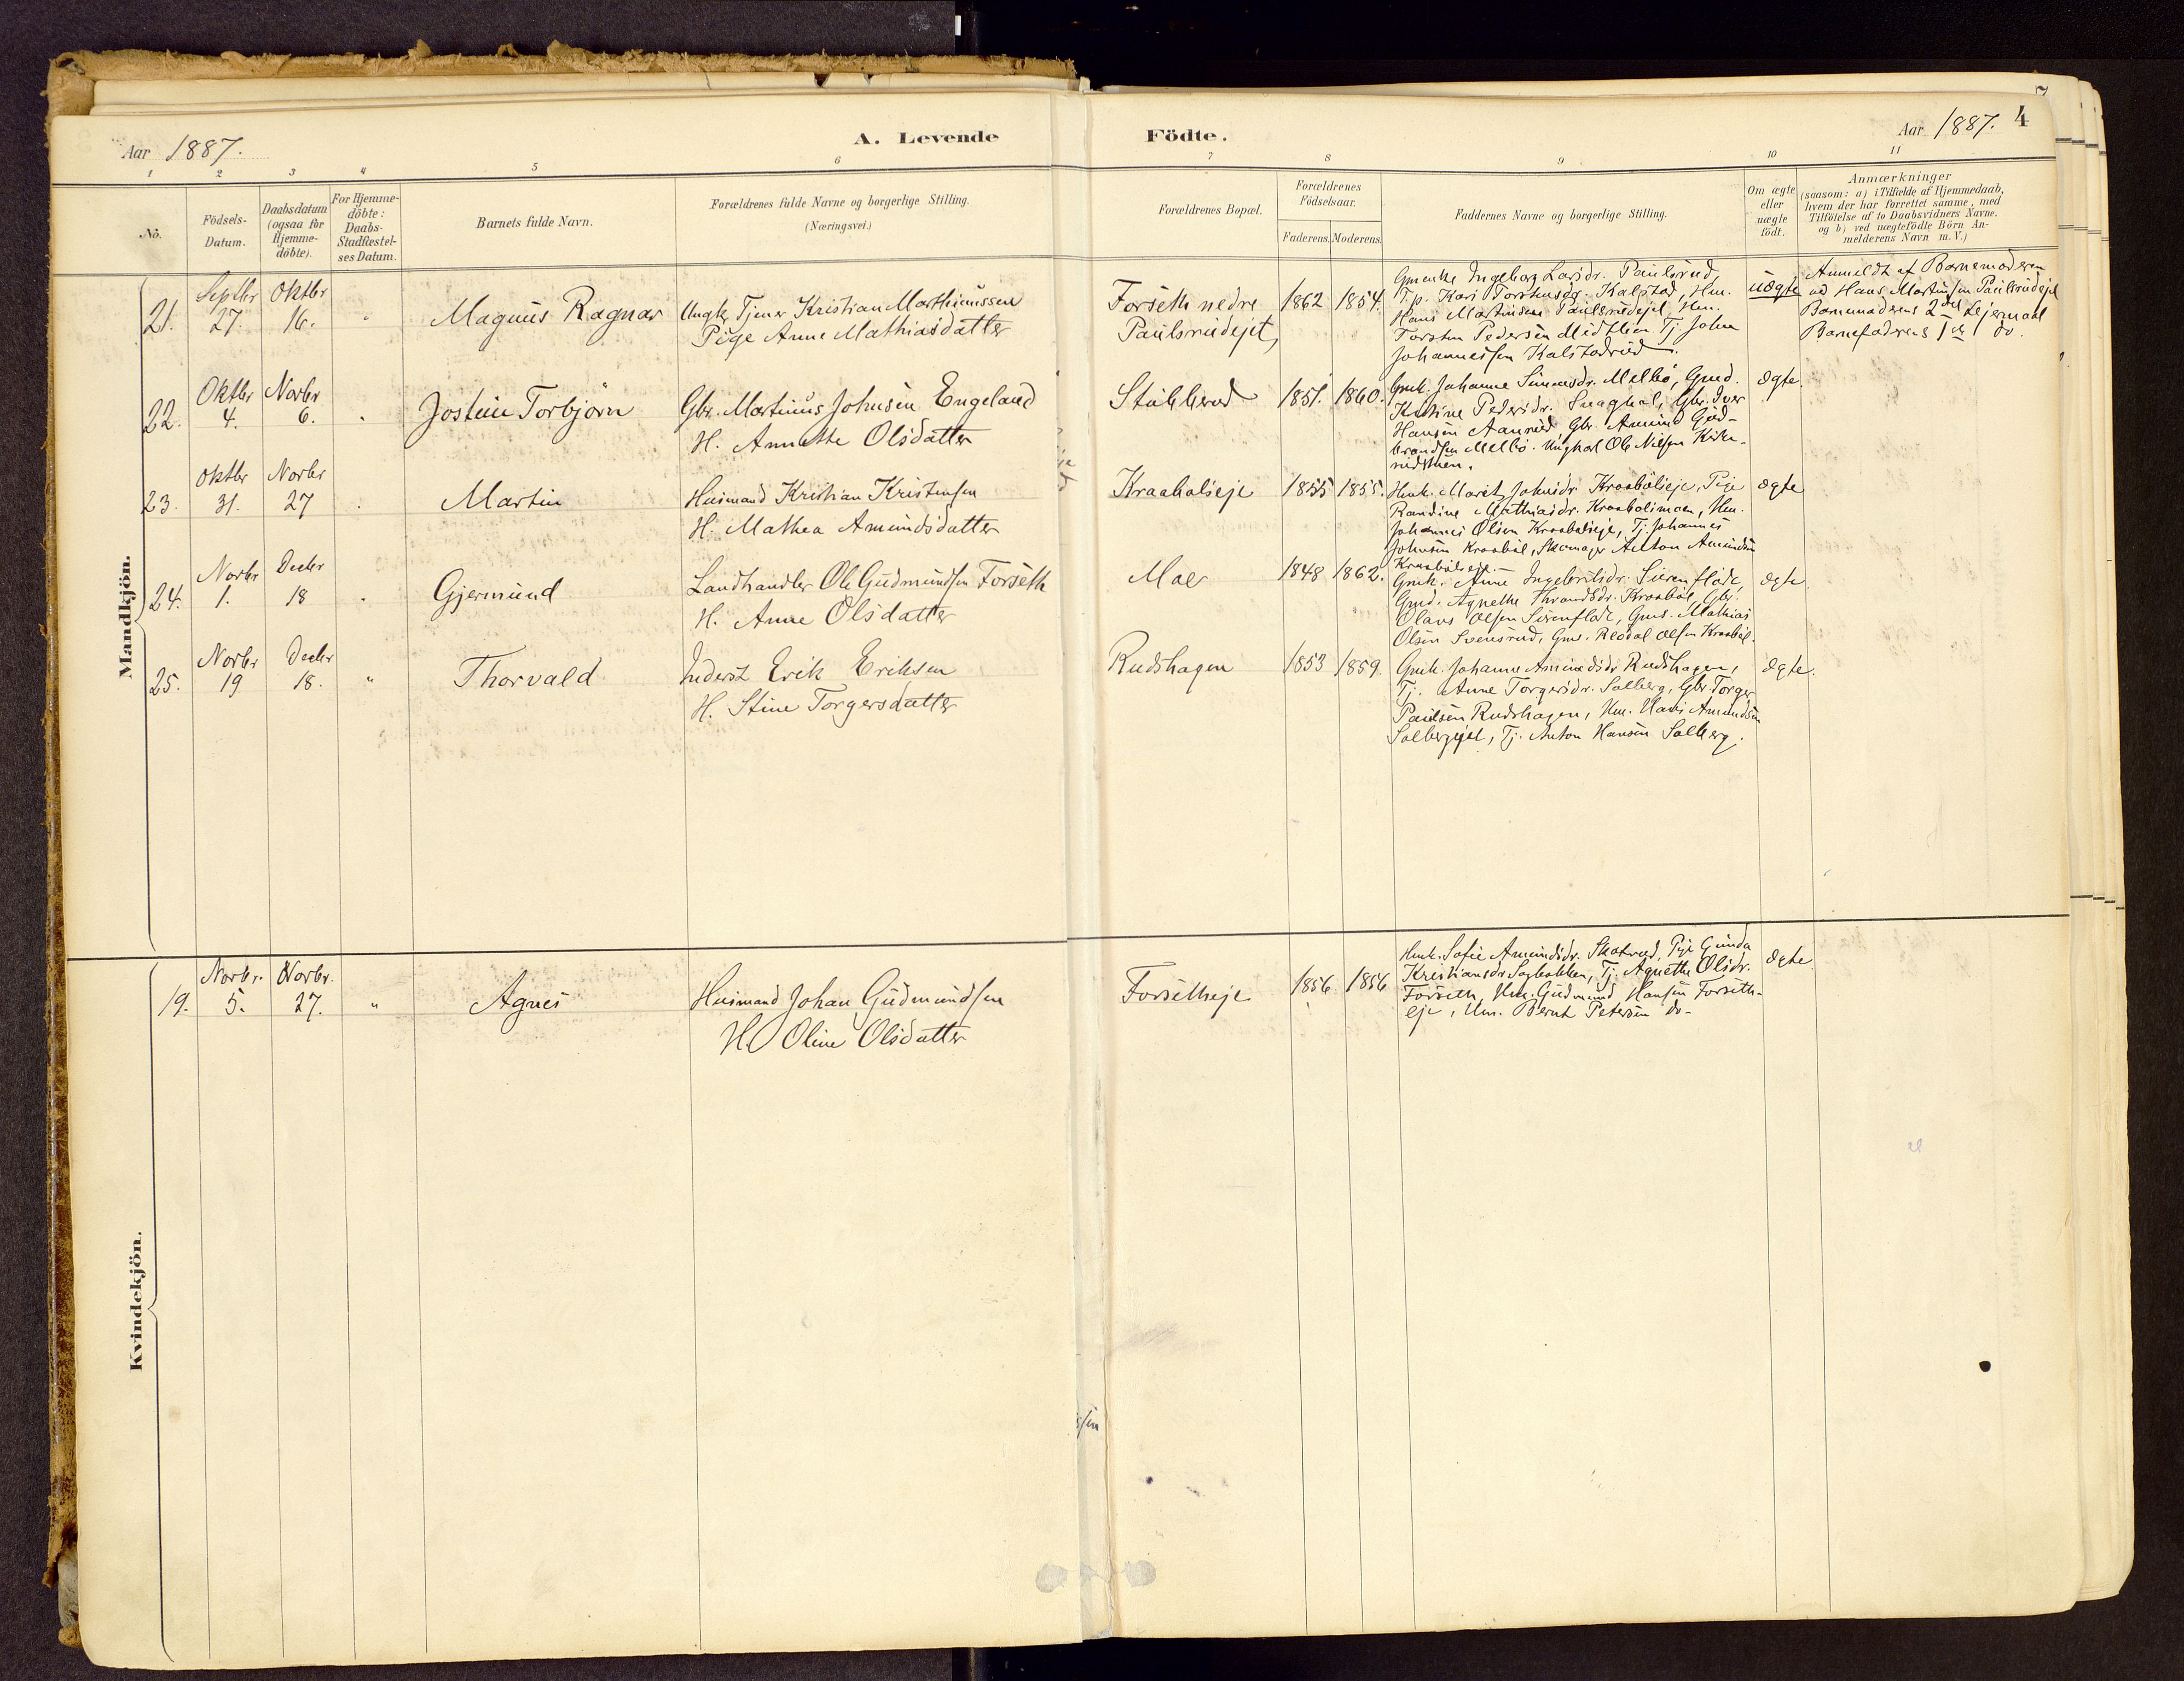 Aar 1887.
A. Levende Födte.
Aar 1887. 4
1 2 3 4 5 6 7 8 9 10 11
No.
Födsels-Datum.
Daabsdatum (ogsaa for Hjemme-döbte).
For Hjemme-döbte: Daabs-Stadfæstel-ses Datum.
Barnets fulde Navn.
Forældrenes fulde Navne og borgerlige Stilling.
(Næringsvei.)
Forældrenes Bopæl.
Forældrenes Födselsaar.
Faderens. Moderens.
Faddernes Navne og borgerlige Stilling.
Om ægte eller uægte födt.
Anmærkninger
(saasom: a) i Tilfælde af Hjemmedaab,
hvem der har forrettet samme, med
Tilföielse af to Daabsvidners Navne.
og b) ved uægtefödte Börn An-
melderens Navn m. V.)
Mandkjön.
21. Septbr 27. Oktbr 16. "
Magnus Ragnar
Ungk. Tjener Kristian Mathiaussen
Pige Anne Mathiasdatter
Forseth nedre
Paulsrudejet
1862 1854.
Gmenke Ingeborg Larsdr. Paulsrud,
T.p. Kari Torstensdr. Kalstad, Hm.
Hans Martinsen Paulsrudejet, Hm.
Torsten Pedersen Midtlien Tj. John
Johannessen Kalstadrud.
uægte
Anmeldt af Barnemoderen
ved Hans Martinsen Paulsrudejet
Barnemoderens 2det Lejermaal
Barnefaderens 1ste do.
22. Oktbr 4. Novbr 6. "
Jostein Torbjörn
Gbr. Martinus Johnsen Engeland
H. Annette Olsdatter
Stubberud
1851. 1860.
Gmk. Johanne Simensdr. Mellbö, Gmd.
Kristine Pedersdr. Svaghol, Gbr. Iver
Hansen Aanrud Gbr. Amund Gud-
brandsen Mellbö. Ungkarl Ole Nilsen Kirke-
rudstuen.
ægte.
23. Oktbr 31. Novbr 27 "
Martin
Husmand Kristian Kristensen
H. Mathea Amundsdatter
Kraabölseje
1855 1855.
Hmk. Marit Johnsdr. Kraabölseje, Pige
Randine Mathiasdr. Kraabölsmoen, Hm.
Johannes Olsen Kraabölseje, Tj. Johannes
Johnsen Kraaböl, Skomager Anton Amundsen
Kraabölseje.
ægte
24. Novbr 1. Decbr 18 "
Gjermund
Landhandler Ole Gudmundsen Forseth
H. Anne Olsdatter
Moer
1848 1862.
Gmk. Anne Ingebretsdr. Sirenflöde,
Gmd. Agnethe Thrandsdr. Kraaböl, Gbr.
Olaus Olsen Sirenflöde, Gms. Mathias
Olsen Svensrud, Gms. Olsen Kraaböl.
ægte
25. Novbr 19 Decbr 18. "
Thorvald
Inderst Erik Eriksen
H. Stine Torgersdatter
Rudshagen
1853 1859.
Gmk. Johanne Amundsdr. Rudshagen,
Tj. Anne Torgersdr. Solberg, Gbr. Torger
Paulsen Rudshagen, Hm. Hans Amundsen
Solbergejet, Tj. Anton Hansen Solberg.
ægte.
Kvindekjön.
19. Novbr. 5. Novbr. 27. "
Agnes
Husmand Johan Gudmundsen
H. Oline Olsdatter
Forsetheje
1856. 1856
Hmk. Sofie Amundsdr. Skotrud, Pige Gunda
Kristiansdr. Sagbakken, Tj. Agnethe Olsdr.
Forseth, Hm. Gudmund Hansen Forseth-
eje, Um. Bernt Petersen do-
ægte.